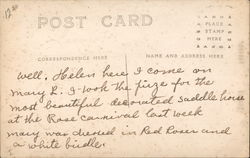 12.50
POST CARD
PLACE
STAMP
HERE
CORRESPONDENCE HERE
NAME AND ADDRESS HERE
Well. Helen here I come on
Mary L. I took the prize for the
most beautiful decorated saddle horse
at the Rose Carnival last week
Mary was dressed in Red Roses and
a white bridle.